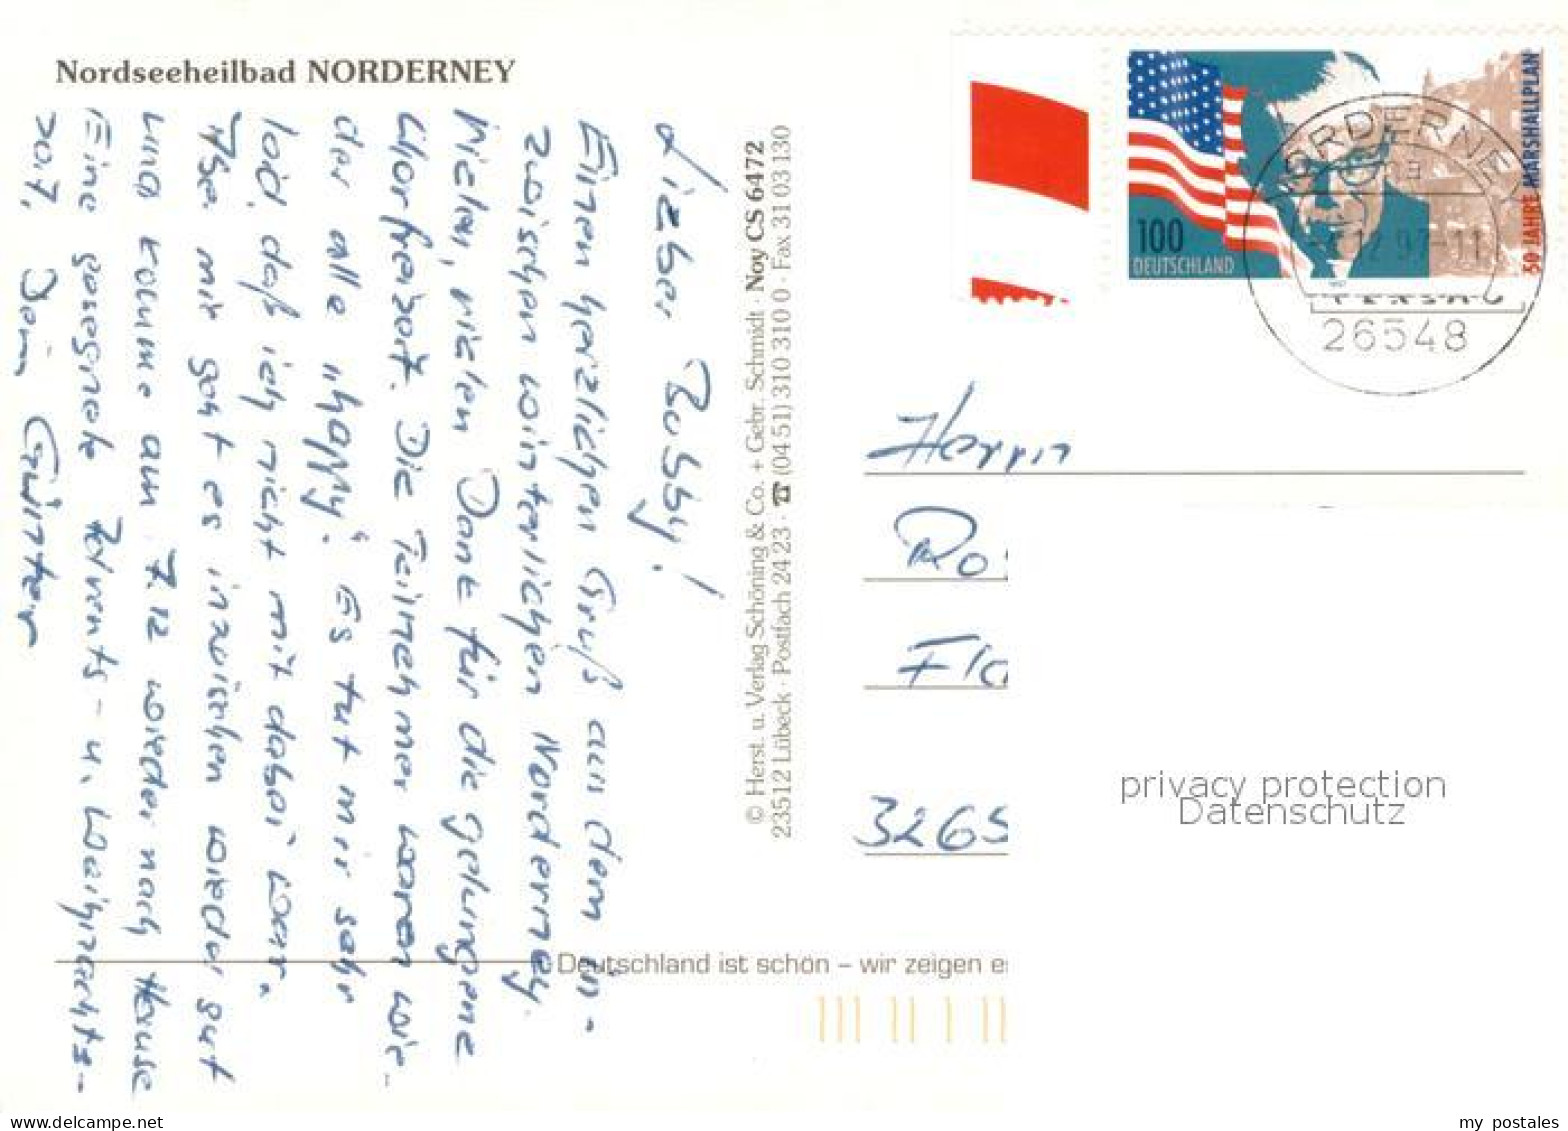 Nordseeheilbad NORDERNEY
Lieber Bubby!
Einen herzlichen Gruß aus dem in-
zwischen winterlichen Norderney.
Vielen, vielen Dank für die gelungene
Chorfreizeit. Die Teilnehmer waren wie-
der alle „happy“. Es tut mir sehr
leid, daß ich nicht mit dabei war.
Aber mir geht es inzwischen wieder gut
und komme am 7.12 wieder nach Hause
Eine gesegnete Advents- u. Weihnachts-
zeit, Dein Günter
© Herst. u. Verlag Schöning & Co. + Gebr. Schmidt · Noy CS 6472
23512 Lübeck · Postfach 24 23 · ☎ (04 51) 310 310 0 · Fax 31 03 130
100
DEUTSCHLAND
50 JAHRE MARSHALLPLAN
NORDERNEY
a
12.97-11
26548
Herrn
Ro
Fl
3265
privacy protection
Datenschutz
Deutschland ist schön – wir zeigen es
delcampe.net
my_postales